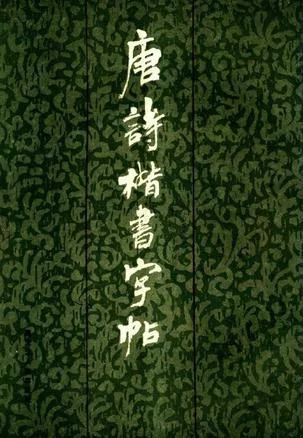 唐詩楷書字帖